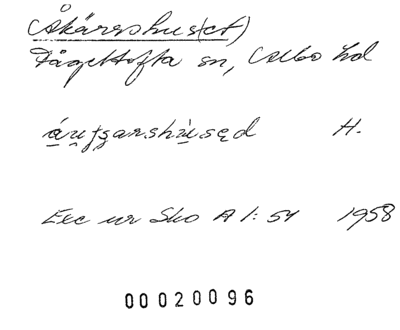 (Åkärrshus(et)
Fågeltofta sn, Albo hd
H.
Exc ur Sko A 1:54 1958
00020096